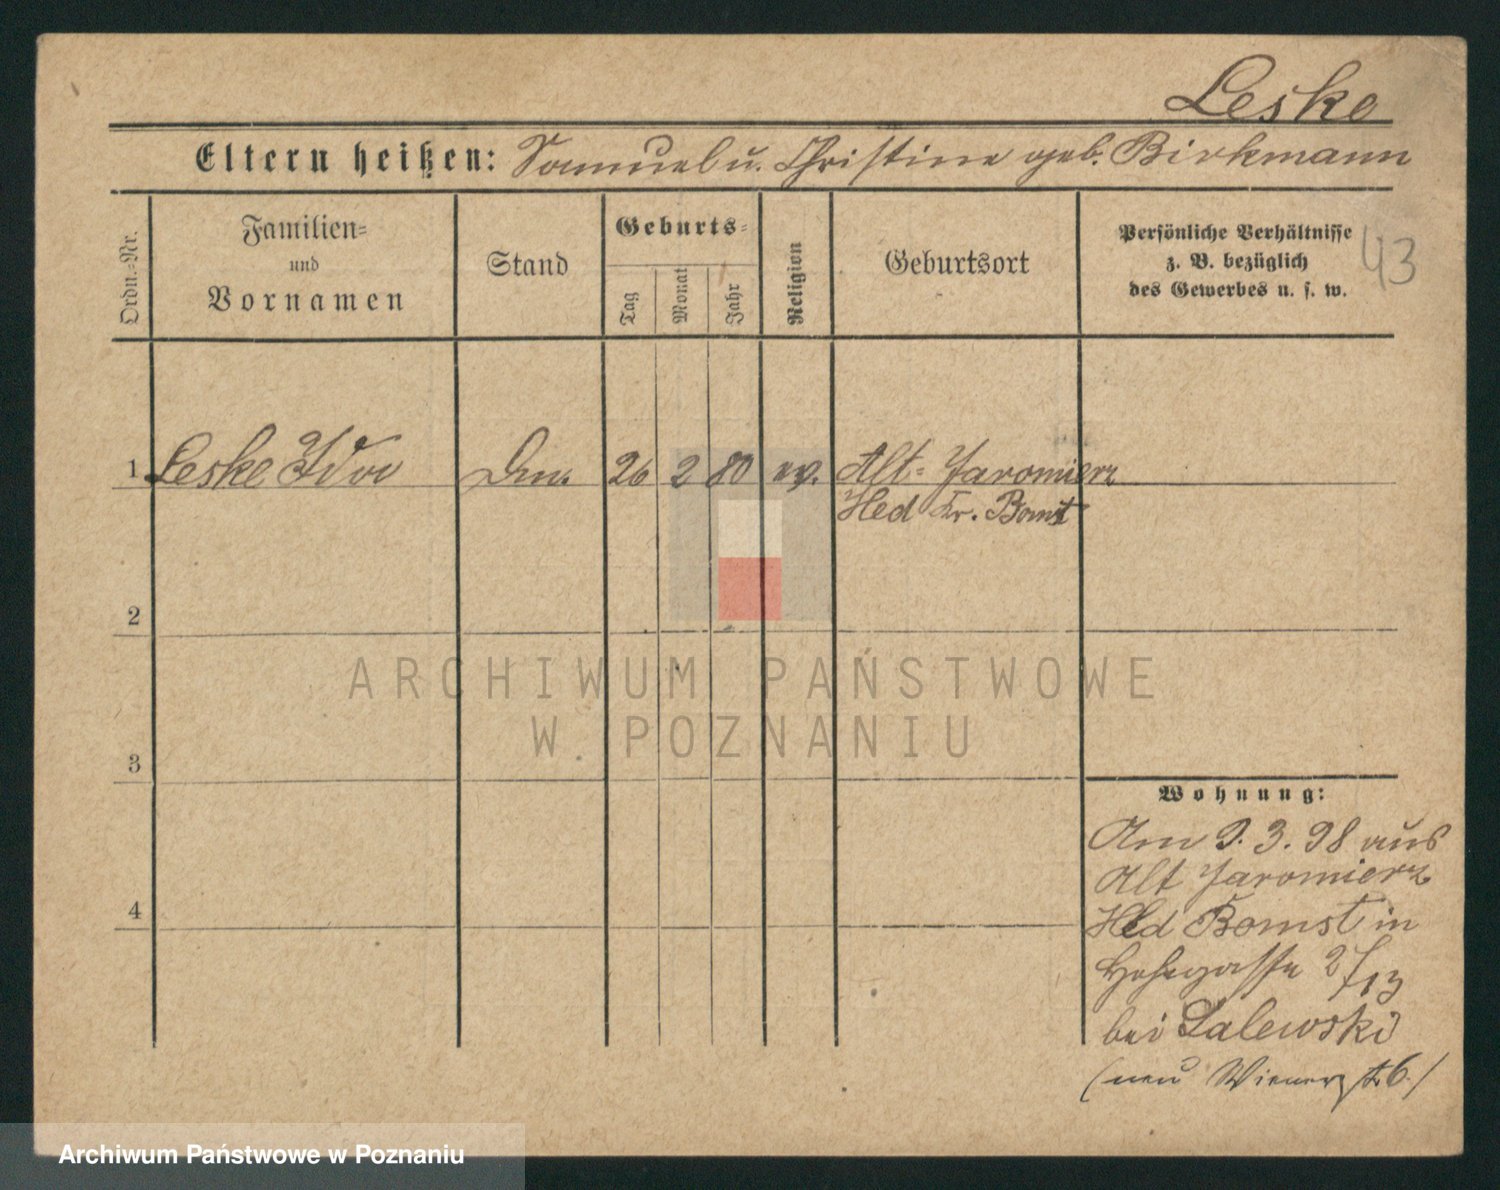 Leske
Eltern heißen: Samuel u. Christine geb. Birkmann
Ordn.-Nr.
Familien-
und
Vornamen
Stand
Geburts-
Tag
Monat
Jahr
Religion
Geburtsort
Persönliche Verhältnisse
z. B. bezüglich
des Gewerbes u. s. w.
43
1 Leske Dm. 26 2 80 ev. Alt-Jaromierz
Hld Kr. Bomst
2
3
4
Wohnung:
Am 9. 3. 98 aus
Alt Jaromierz
Hld Bomst in
2/13
bei Lalewski
(neu Wiener 6.)
ARCHIWUM PAŃSTWOWE
W POZNANIU
Archiwum Państwowe w Poznaniu